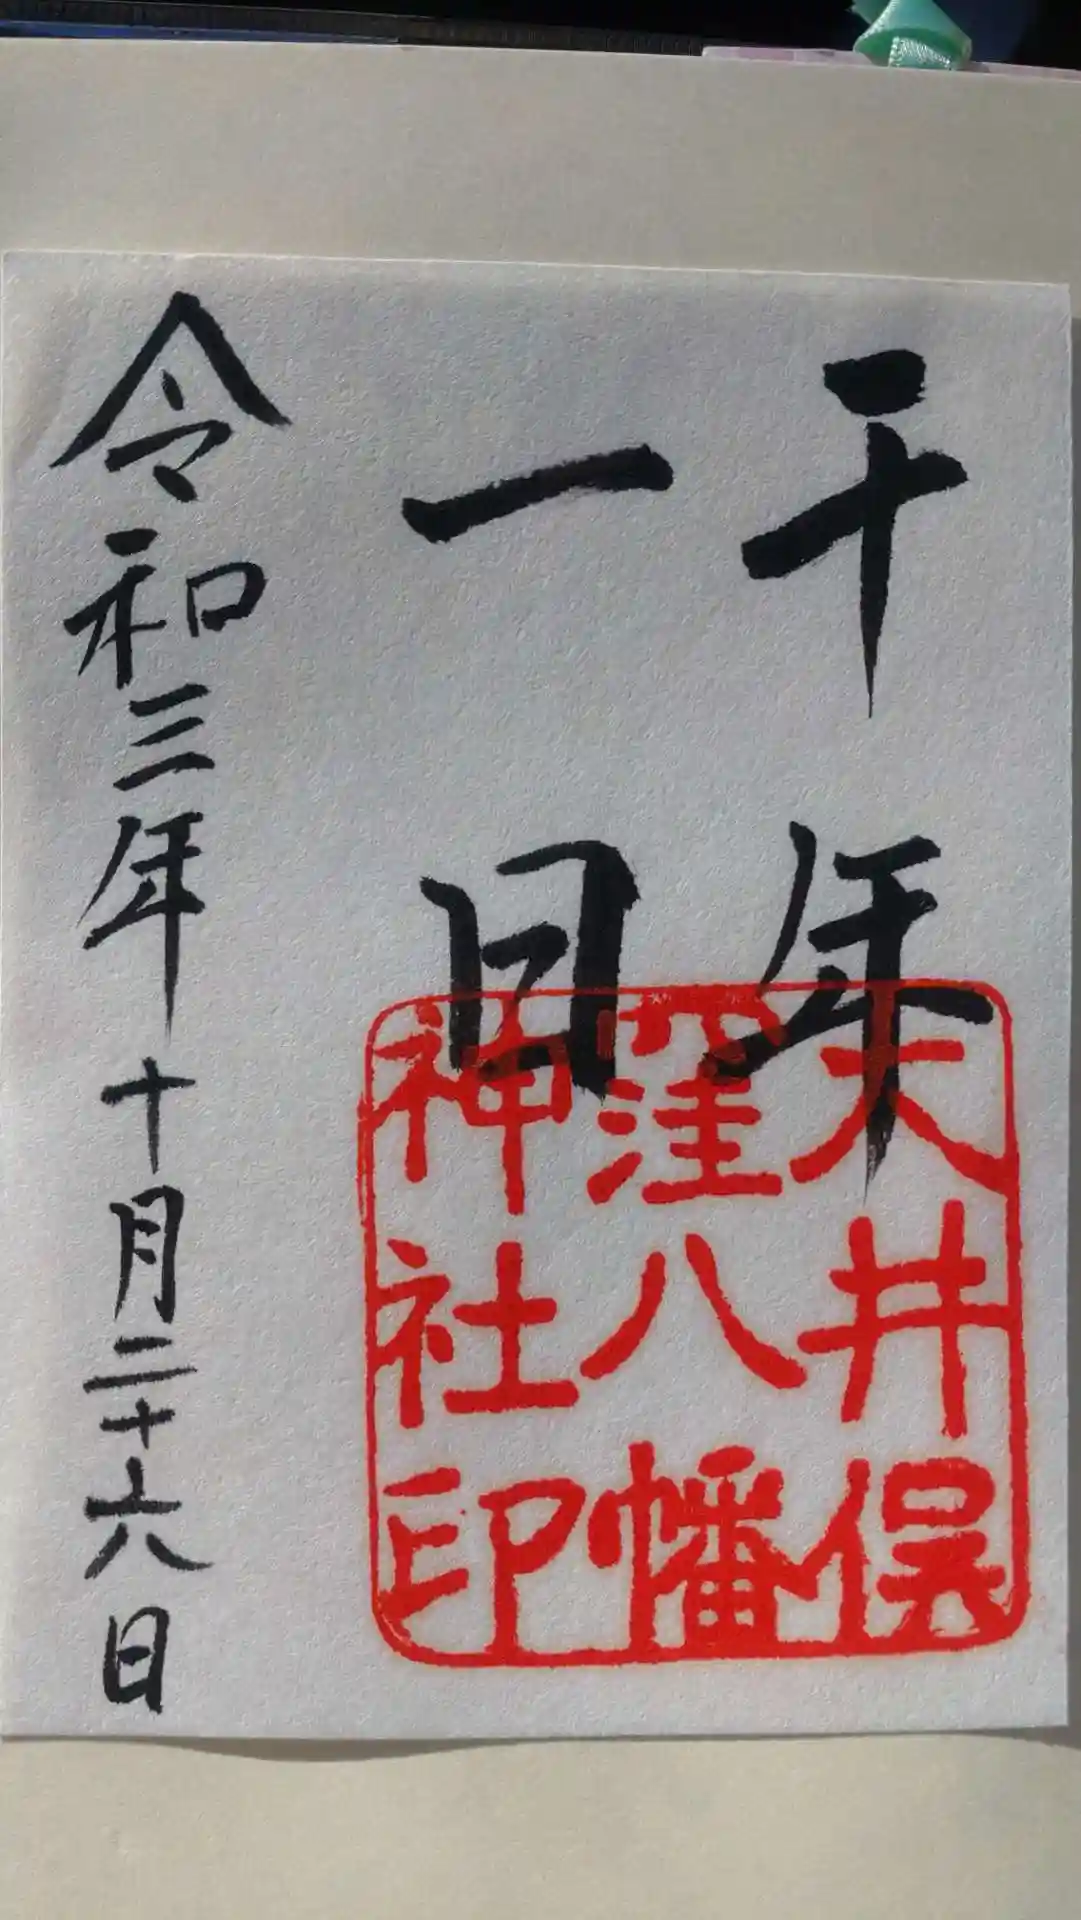 千年
一日
令和三年十月二十六日
大井俣
窪八幡
神社印